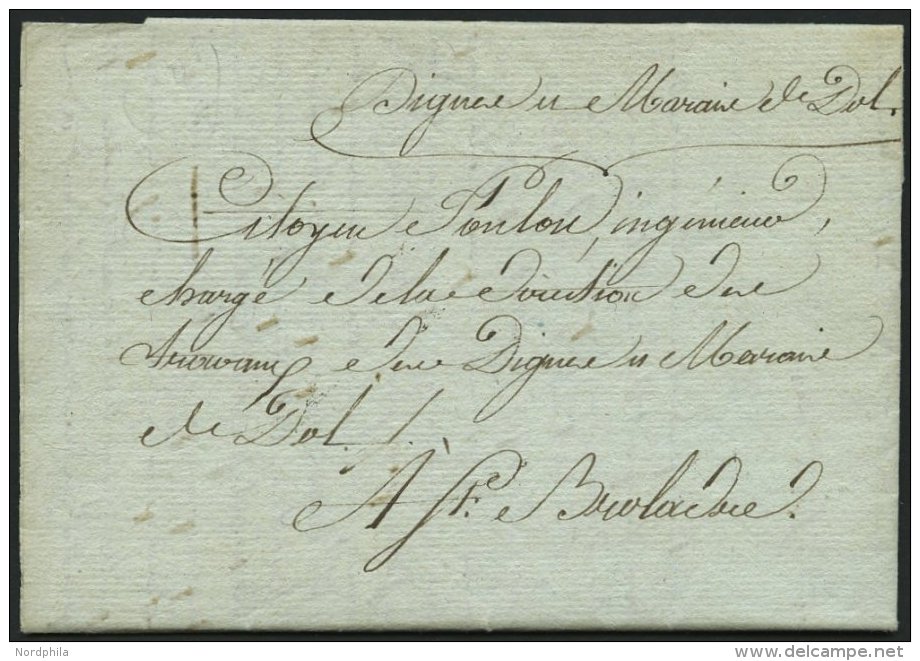 Digues et Marais de Dol.
Citoyen Foulon, ingénieur,
chargé de la direction des
travaux des Digues et Marais
de Dol /.
A St. Broladre.
Nordphila
www.delcampe.net